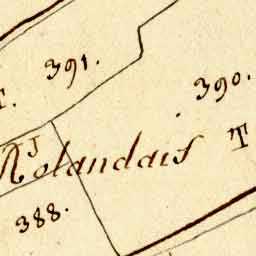 391.
390.
T.
J
Rolandais T
388.